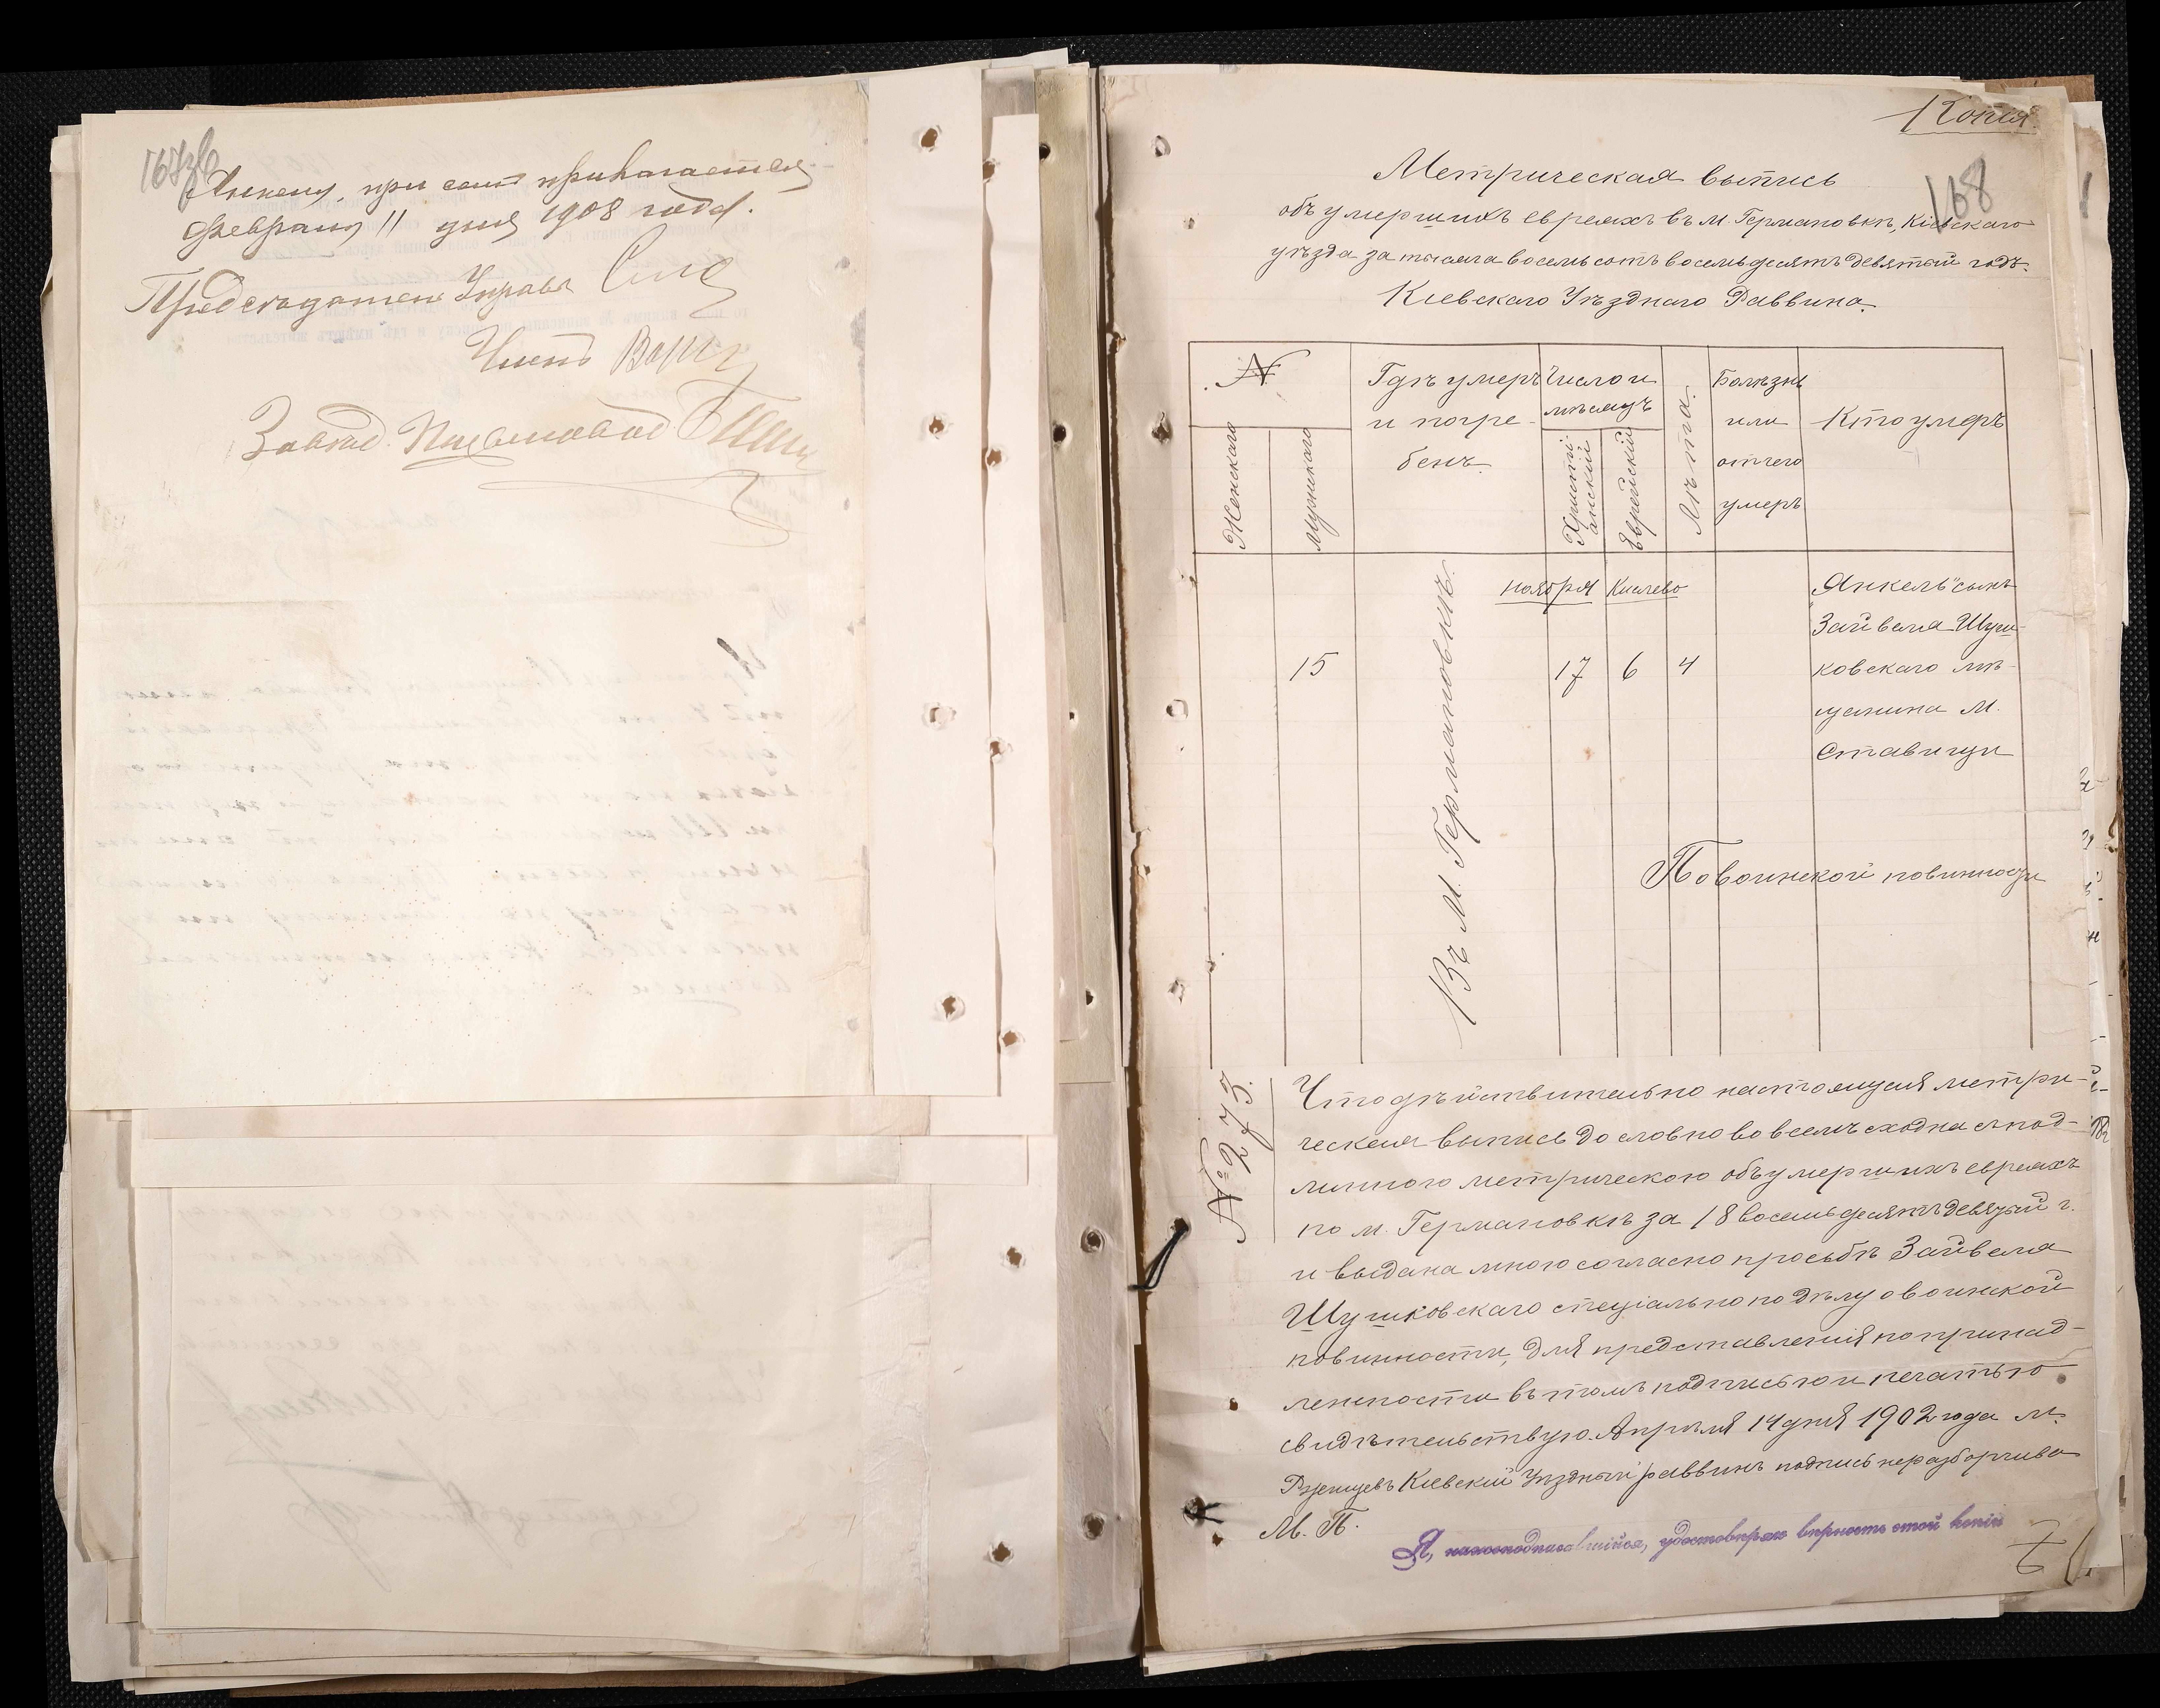 при семъ прилагается
Февраля 11 дня 1908 года.
Предсѣдатель Управы
Членъ
Завѣд. Письмовод
Копія.
168
Метрическая выпись
объ умершихъ евреяхъ въ м. Германовкѣ, Кіевскаго
уѣзда за тысяча восемьсотъ восемьдесятъ девятый годъ.
Кіевскаго Уѣзднаго Раввина.
№
Женскаго
Мужескаго
Гдѣ умеръ
и погре-
бенъ.
Число и
мѣсяцъ
Христі-
анскій
Еврейскій
Лѣта.
Болѣзнь
или
отчего
умеръ
Кто умеръ
15
Въ м. Германовкѣ.
ноября
17
Кислево
6
4
„Янкель" сынъ
Зайвеля Шуш-
ковскаго мѣ-
щанина м.
Ставищи
По воинской повинности
№ 273.
Что дѣйствительно настоящая метри-
ческая выпись дословно во всемъ сходна с под-
линною метрическою объ умершихъ евреяхъ
по м. Германовкѣ за 18 восемьдесятъ девятый г.
и выдана мною согласно просьбѣ Зайвеля
Шушковскаго спеціально по дѣлу о воинской
повинности, для представленія по принад-
лежности въ томъ подписью и печатью
свидѣтельствую. Апрѣля 14 дня 1902 года м.
Ржищевъ Кіевскій Уѣздный раввинъ подпись неразборчива
М. П.
Я, нижеподписавшійся, удостовѣряю вѣрность этой копіи